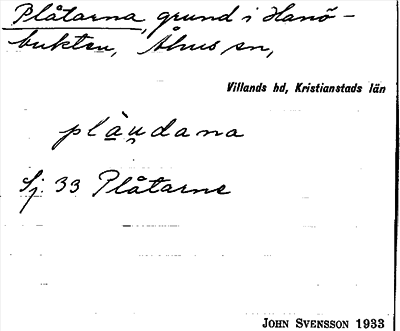 Plåtarna, grund i Hanö-
bukten, Åhus sn,
Villands hd, Kristianstads län
plàu̯dana
Sj. 33 Plåtarne
JOHN SVENSSON 1933